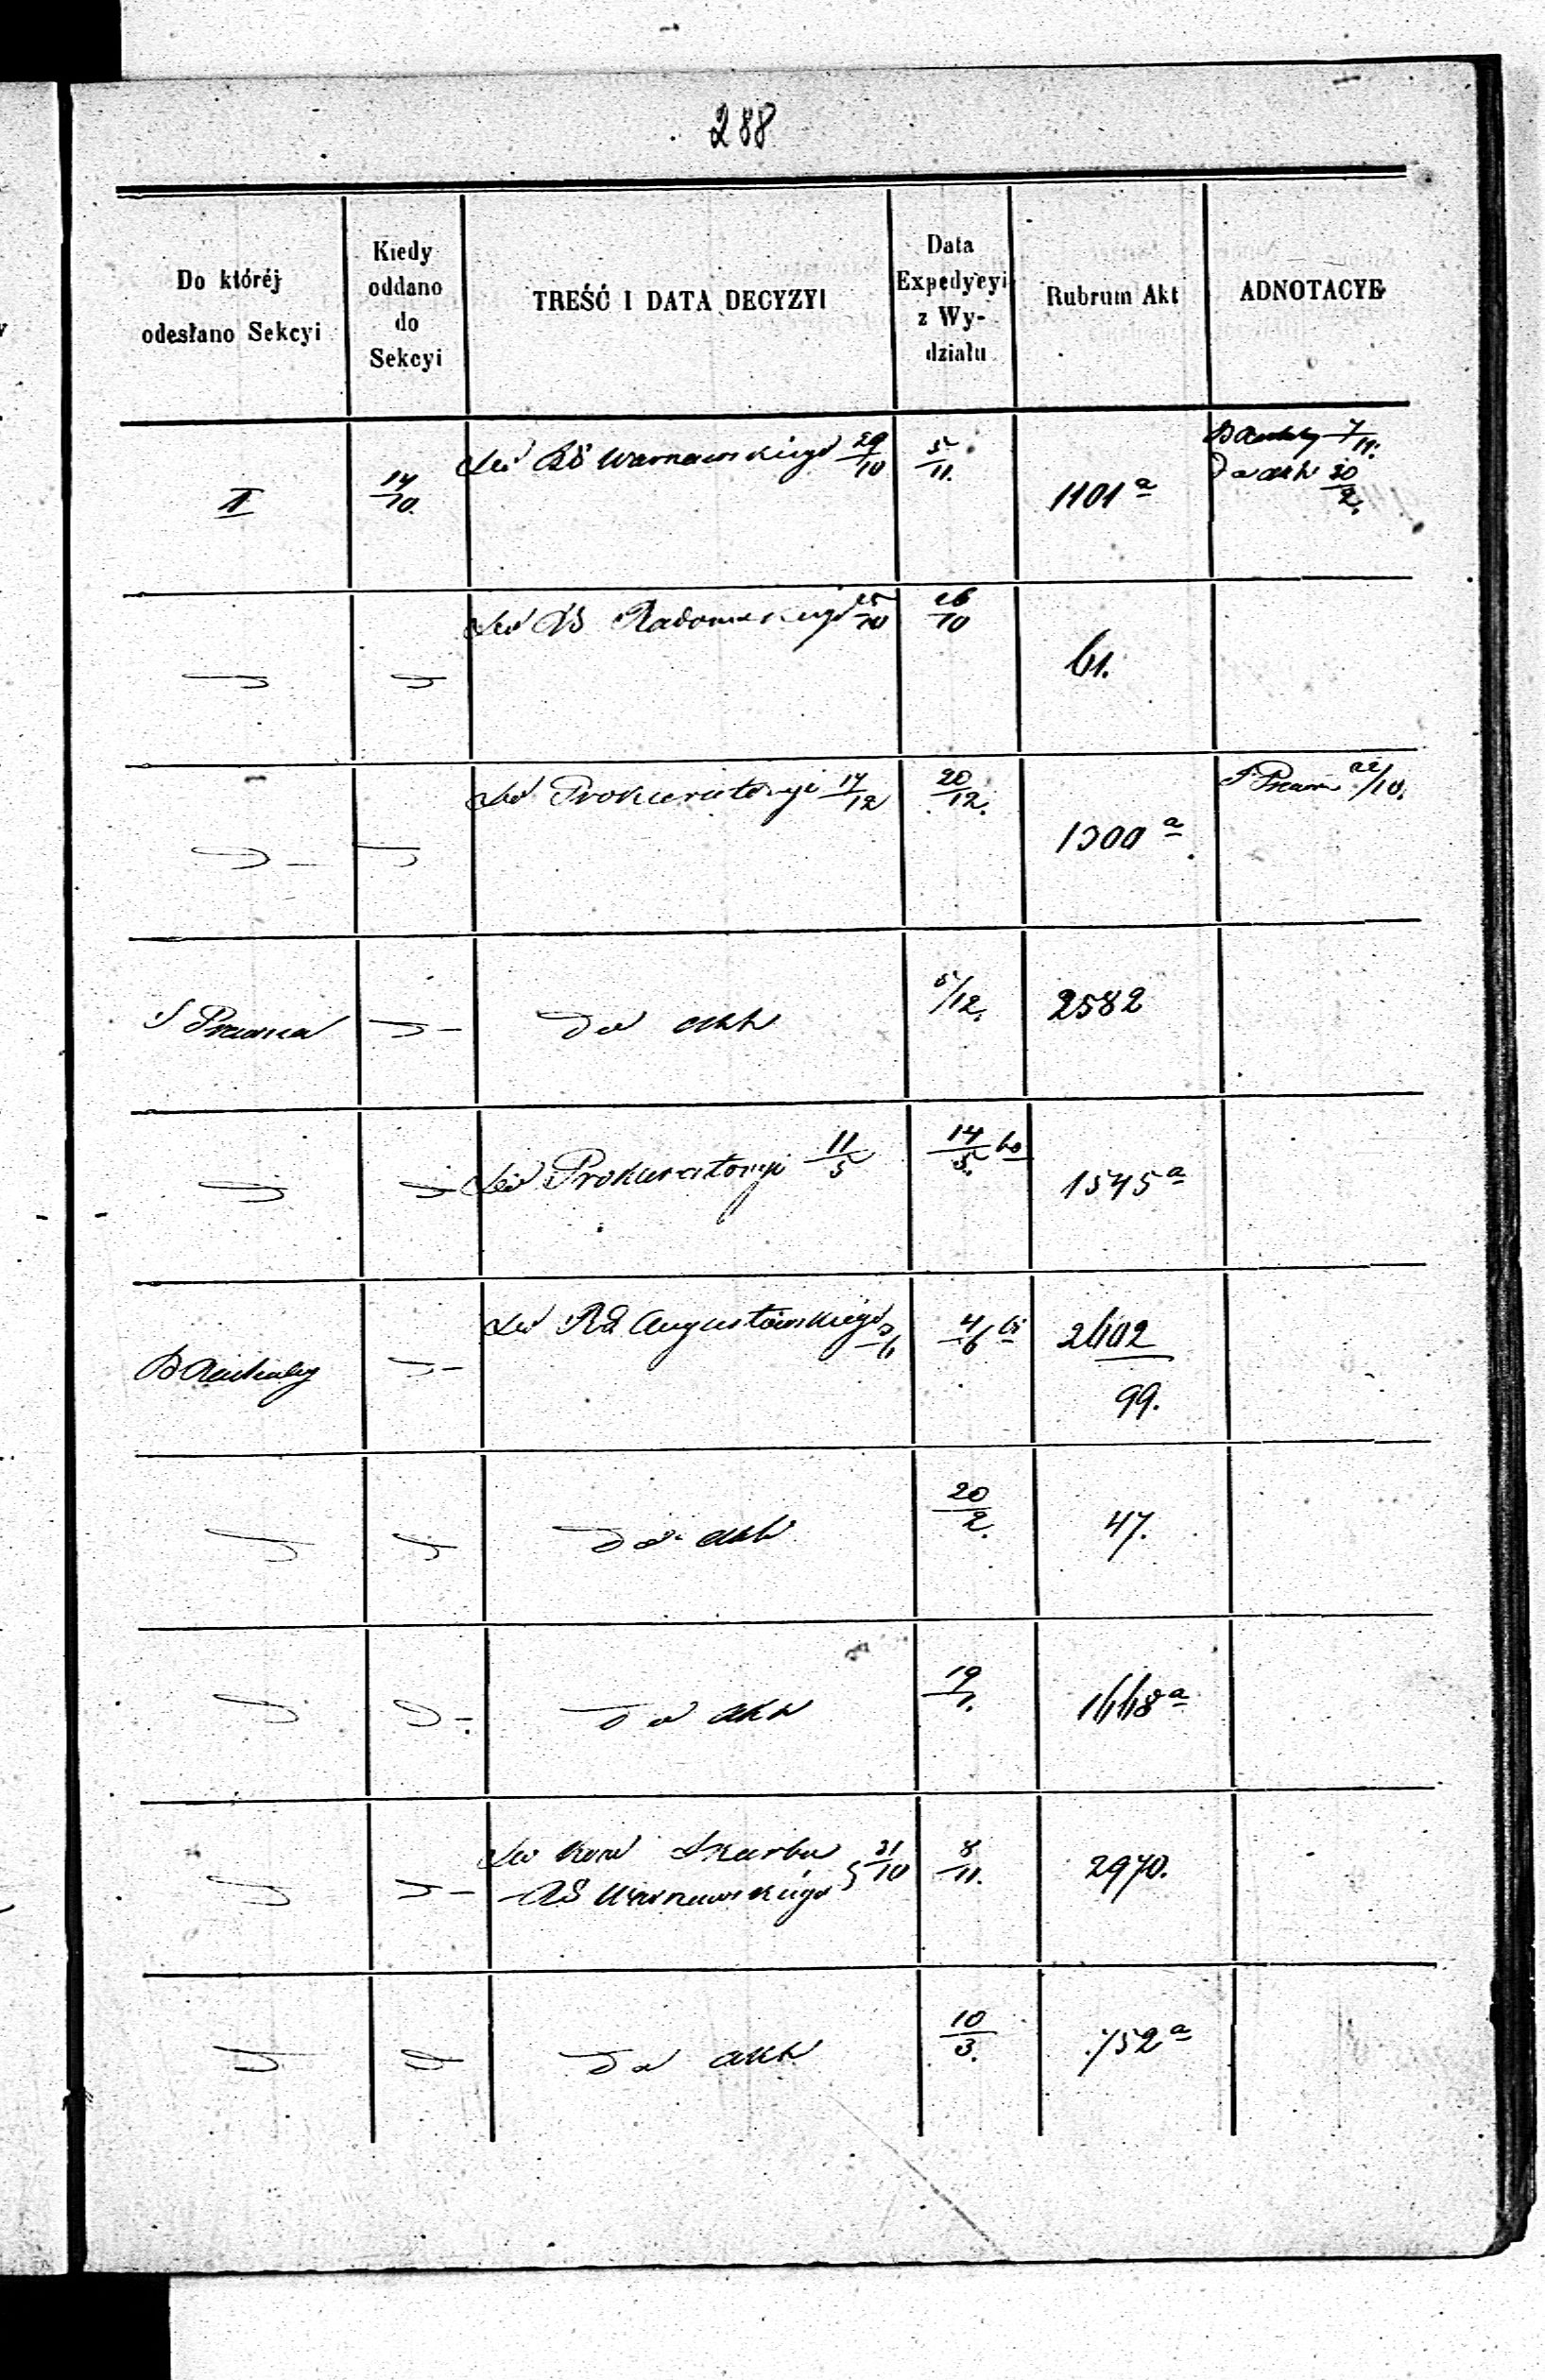 288
Do któréj
odesłano Sekcyi
Kiedy
oddano
do
Sekcyi
TREŚĆ I DATA DECYZYI
Data
Expedycyi
z Wy-
działu
Rubrum Akt
ADNOTACYE
II
14/10.
Do RG Warszawskiego 29/10
5/11.
1101 a
7/11.
Do akt 20/2.
Do RG Radomskiego 25/10
26/10
61.
Do Prokuratoryi 17/12
20/12.
1300 a
S Prawn 22/10.
S Prawna
Do akt
5/12.
2582
Do Prokuratoryi 11/5
14/5. 60
1545 a
B Rachuby
Do RG Augustowskiego
4/6 61
2602
99.
Do akt
20/2.
47.
Do akt
19/1.
1668 a
Do Kom Skarbu
RG Warszawskiego 31/10
8/11.
2970.
Do akt
10/3.
752 a